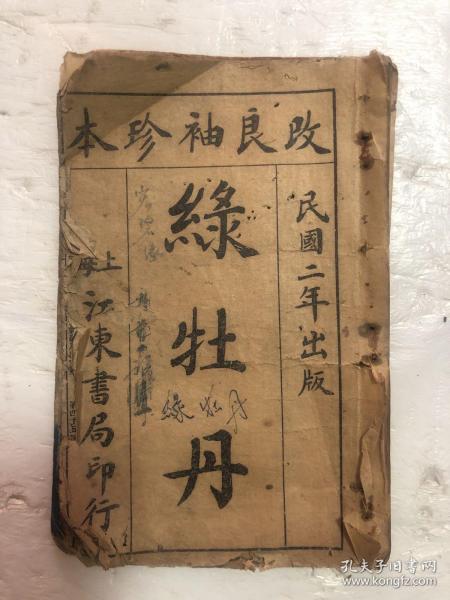 改良袖珍本
民國二年出版
綠牡丹
綠牡丹
上海
江東書局印行
孔夫子旧书网
www.kongfz.com